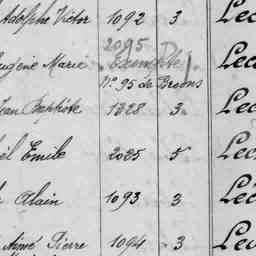 Adolphe Victor 1092 3 Lec
2095
Eugène Marie Exempté Lec
N° 95 de Broons
Jean Baptiste 1328 3 Lec
el Emile 2085 5 Lec
Alain 1093 3 Lec
Aimé Pierre 1094 3 Lec